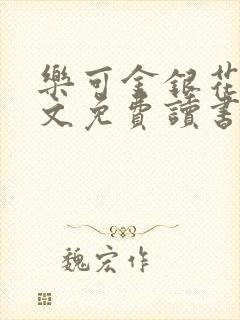 樂可金銀花
文免費讀書
魏宏作